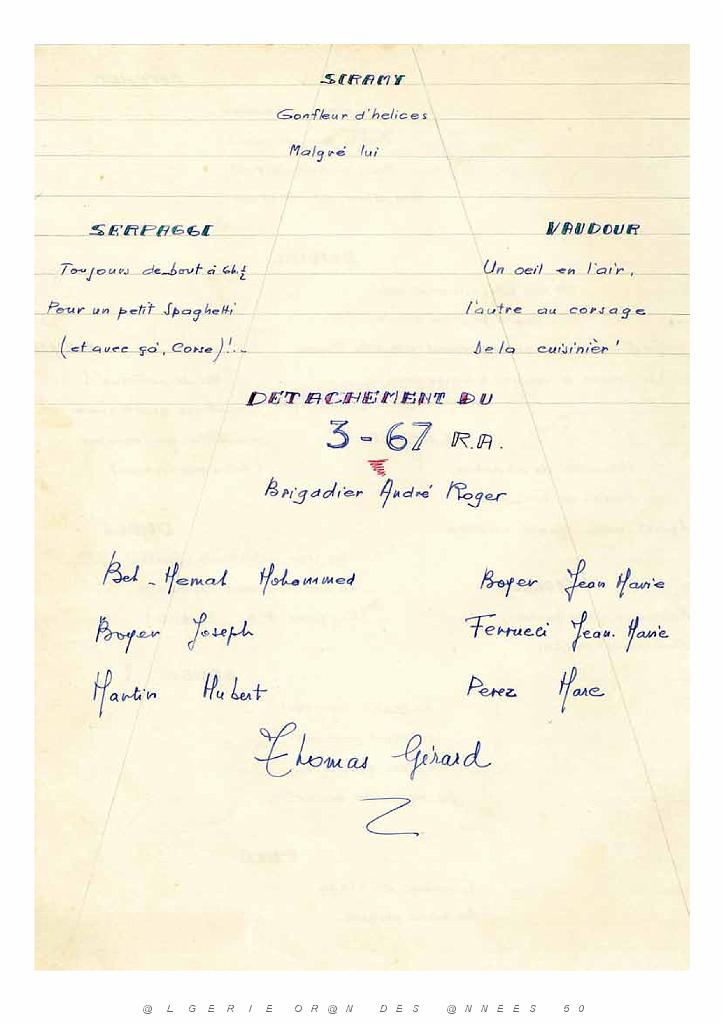 SCRAMY
Gonfleur d'helices
Malgré lui
SERPAGGI
Toujours debout à 6h.½
Pour un petit Spaghetti
(et avec ça, Corse)!..
VAUDOUR
Un oeil en l'air,
l'autre au corsage
De la cuisinièr'
DETACHEMENT DU
3-67 R.A.
Brigadier André Roger
Bel-Hemat Mohammed
Boyer Jean Marie
Boyer Joseph
Ferrucci Jean. Marie
Martin Hubert
Perez Marc
Thomas Gérard
@LGERIE OR@N DES @NNEES 50